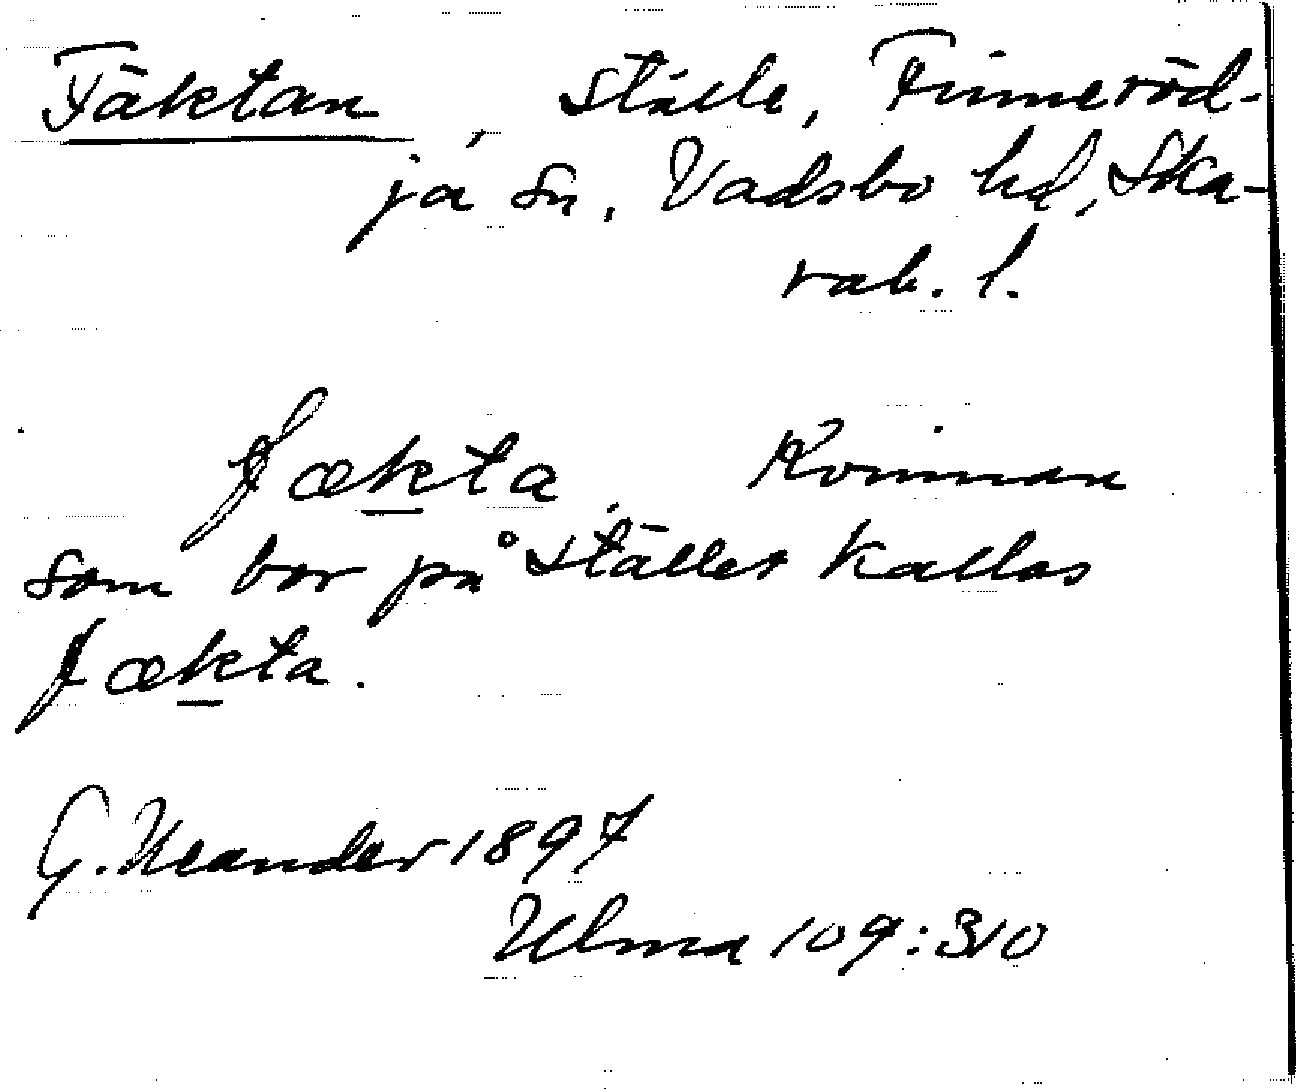 Fäktan, ställe, Finneröd-
ja sn, Vadsbo hd, Ska-
rab. l.
fækta. Kvinnan
som bor på stället kallas
fækta.
G. Neander 1897
Ulma 109:310